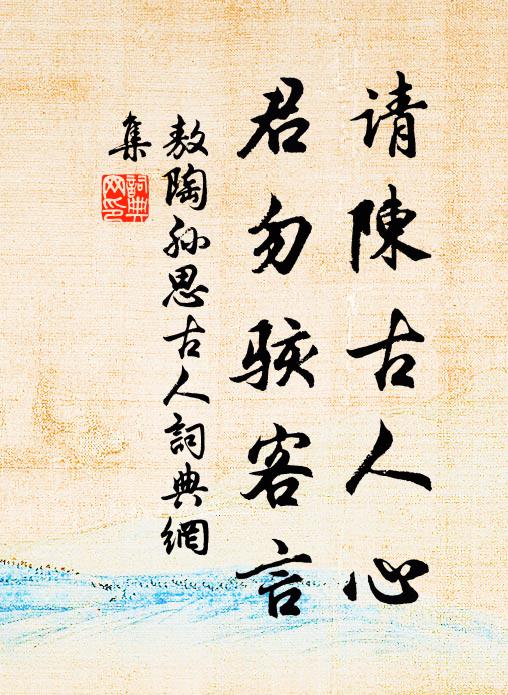 请陳古人心
君勿駭客言
敖陶孙思古人詞典網
集
詞典
网印